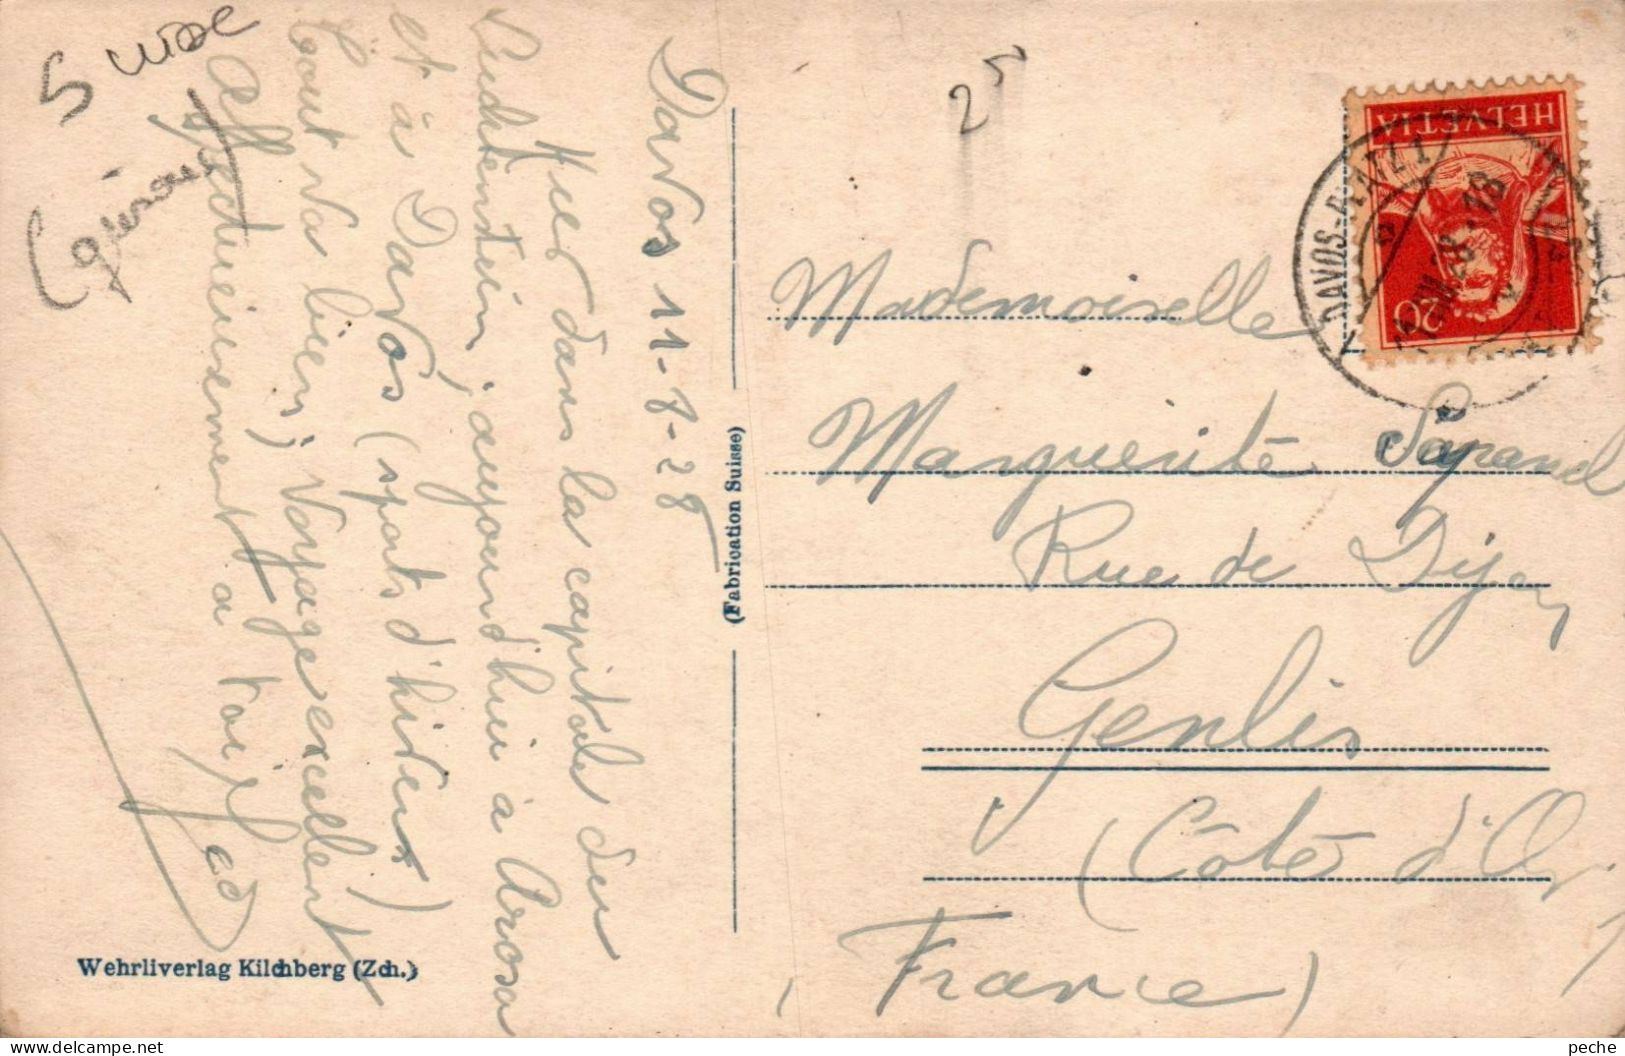 Suisse
25
Davos 11-8-28
Hier dans la capitale du
Liechtenstein, aujourd'hui à Arosa
et à Davos (sports d'hiver)
tout va bien, voyage excellent
Affectueusement à toi
(Fabrication Suisse)
Wehrliverlag Kilchberg (Zch.)
HELVETIA
20
DAVOS-PLATZ 1
Mademoiselle
Marguerite
Rue de Dijon
Genlis
(Côte d'Or)
(France)
peche